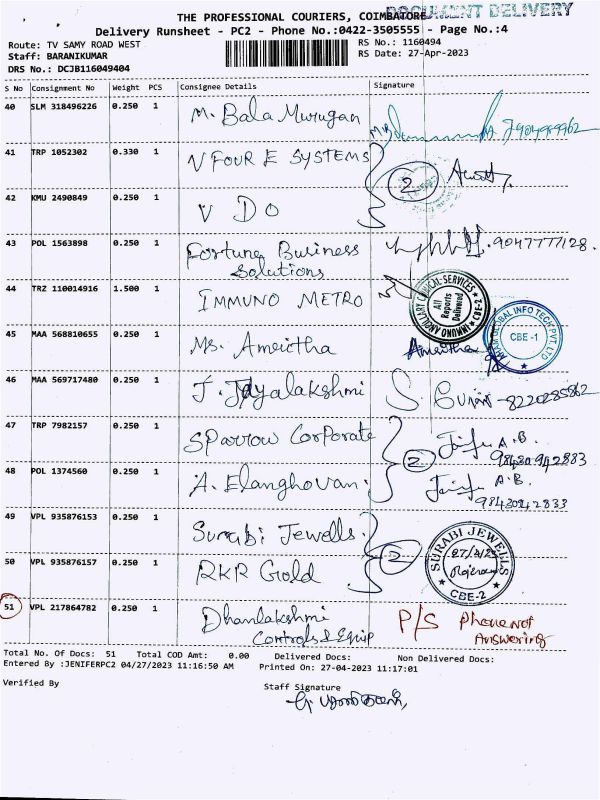 THE PROFESSIONAL COURIERS, COIMBATORE
DOCUMENT DELIVERY
Delivery Runsheet - PC2 - Phone No.:0422-3505555 - Page No.:4
Route: TV SAMY ROAD WEST
RS No.: 1160494
Staff: BARANIKUMAR
RS Date: 27-Apr-2023
DRS No.: DCJB116049404
S No Consignment No Weight PCS Consignee Details Signature
40 SLM 318496226 0.250 1 M. Bala Murugan
41 TRP 1052302 0.330 1 V FOUR E SYSTEMS 2
42 KMU 2490849 0.250 1 V D O
43 POL 1563898 0.250 1 Fortune Business Solutions 9047777128.
44 TRZ 110014916 1.500 1 IMMUNO METRO
IMMUNO ANCILLARY CLINICAL SERVICES
All Reports Delivered
CBE-2
45 MAA 568810655 0.250 1 Ms. Amirtha Amirtha
GLOBAL INFO TECH PVT. LTD
CBE -1
46 MAA 569717480 0.250 1 J. Jayalakshmi S. 8220285862
47 TRP 7982157 0.250 1 Sparrow Corporate 2 A.B.
48 POL 1374560 0.250 1 A. Elanghovan. A.B.
49 VPL 935876153 0.250 1 Surabi Jewells. 2
SURABI JEWELLS
CBE-2
50 VPL 935876157 0.250 1 RKR Gold
51 VPL 217864782 0.250 1 Dhanlakshmi Controls & Equip P/S Phone not Answering
Total No. Of Docs: 51 Total COD Amt: 0.00 Delivered Docs: Non Delivered Docs:
Entered By :JENIFERPC2 04/27/2023 11:16:50 AM Printed On: 27-04-2023 11:17:01
Verified By
Staff Signature